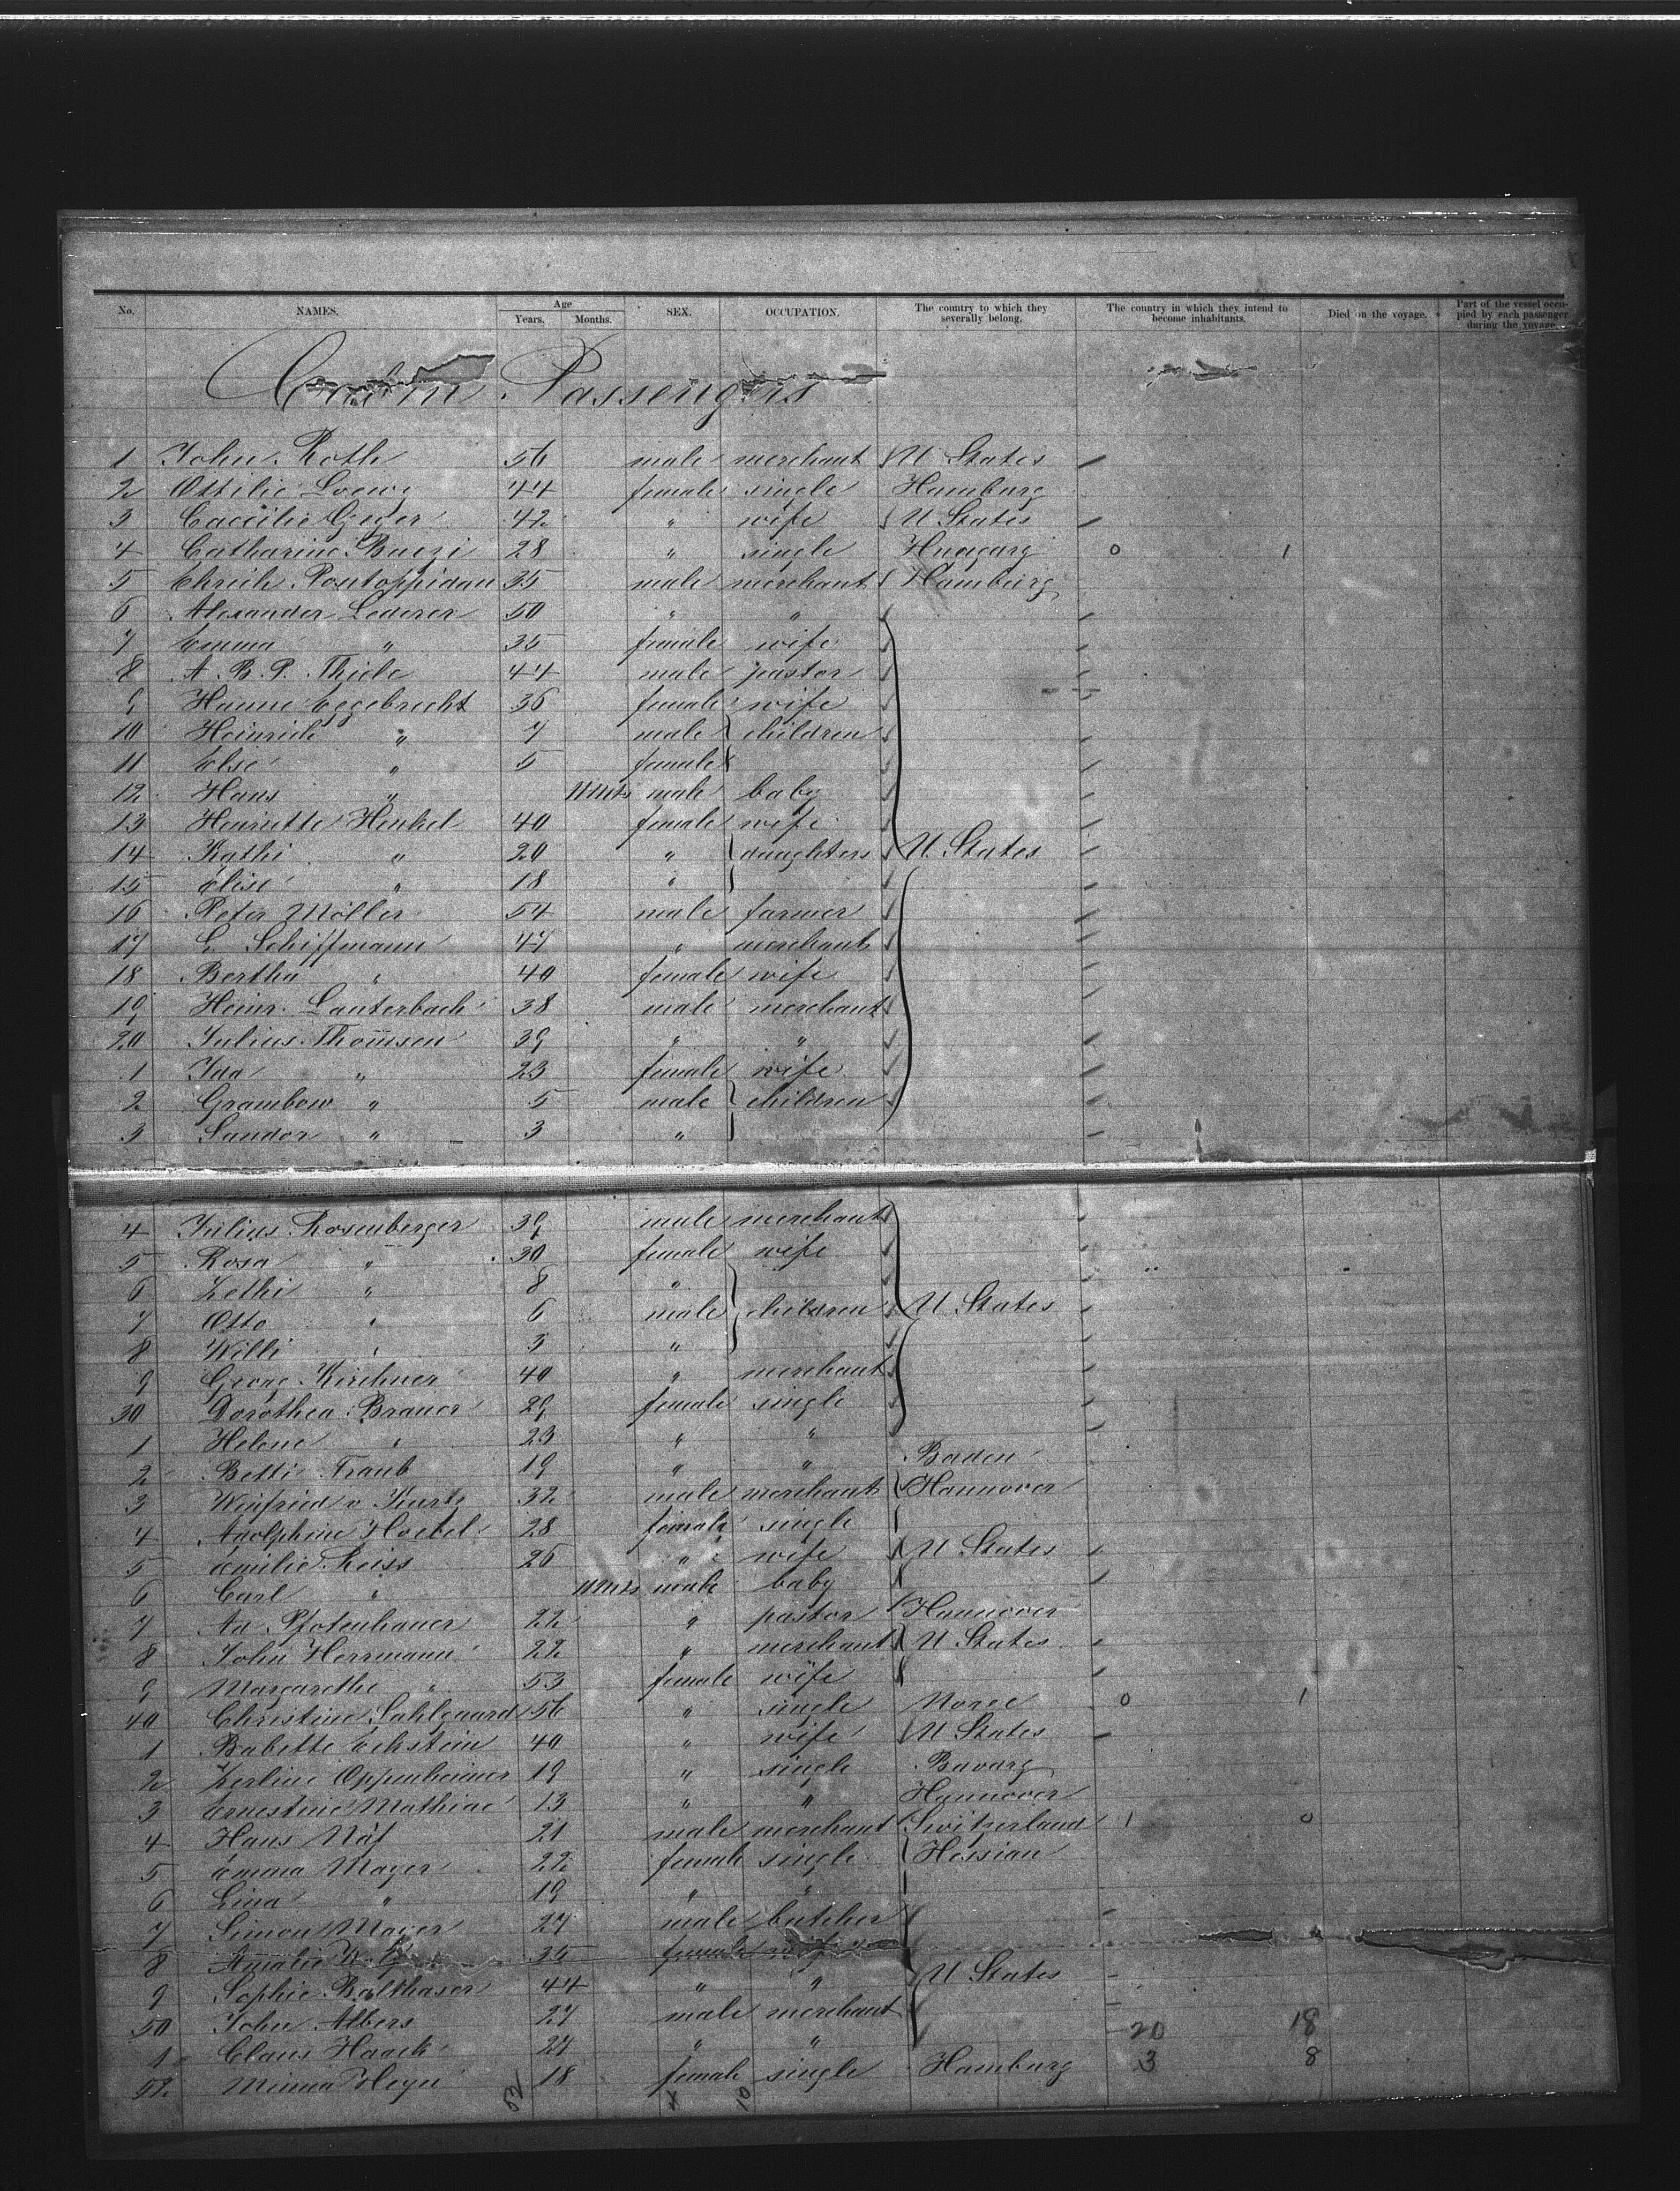 No. NAMES. Age Years. Months. SEX. OCCUPATION. The country to which they severally belong. The country in which they intend to become inhabitants. Died on the voyage. Part of the vessel occupied by each passenger during the voyage.
Cabin Passengers
1 John Roth 56 male merchant U States
2 Ottilie Loewe 44 female single Hamburg
3 Caecilie Geger 42 " wife U States
4 Catharine 28 " single Hungary 0 1
5 Ehrich Pontoppidan 35 male merchant Hamburg
6 Alexander Lederer 50 " "
7 Emma " 35 female wife
8 A. B. P. Thiele 44 male pastor
9 Hanne Eggebrecht 36 female wife
10 Heinrich " 7 male children
11 Else " 5 female
12 Hans " 11 mts male baby
13 Henriette Henkel 40 female wife
14 Kathi " 20 " daughters U. States
15 Elise " 18 "
16 Peter Möller 54 male farmer
17 L. Schiffmann 47 " merchant
18 Bertha " 40 female wife
19 Heinr. Lauterbach 38 male merchant
20 Julius Thomsen 39 " "
1 Ida " 23 female wife
2 Grambow " 5 male children
3 Sandor " 3 "
4 Julius Rosenberger 39 male merchant
5 Rosa " 30 female wife
6 Zethi " 8 "
7 Otto " 6 male children U States
8 Willi " 3 "
9 Georg Kirchner 40 " merchant
30 Dorothea Brauer 29 female single
1 Helene " 23 " "
2 Betti Traub 19 " " Baden
3 Winfried v 32 male merchant Hannover
4 Adolphine Hoebel 28 female single
5 Emilie Reiss 26 " wife U States
6 Carl " 11 mts male baby
7 Ad Pfotenhauer 22 " pastor Hannover
8 John Herrmann 22 " merchant U States
9 Margarethe " 53 female wife
40 Christine Sahlgaard 56 " single Norge 0 1
1 Babette Eckstein 40 " wife U States
2 Zerline Oppenheimer 19 " single Bavarg
3 Ernestine Mathiae 13 " " Hannover
4 Hans Näf 21 male merchant Switzerland 1 0
5 Emma Mayer 22 female single Hessian
6 Lina " 19 " "
7 Simon Mayer 27 male butcher
8 Amalie 35 female
9 Sophie Balthaser 44 " " U States
50 John Albers 27 male merchant
1 Claus Haack 24 " " 20 18
52 Minna Heyn 18 female single Hamburg 3 8
52 4 10